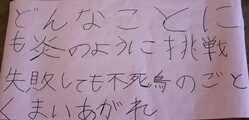 どんなことに
も炎のように挑戦
失敗しても不死鳥のごと
くまいあがれ